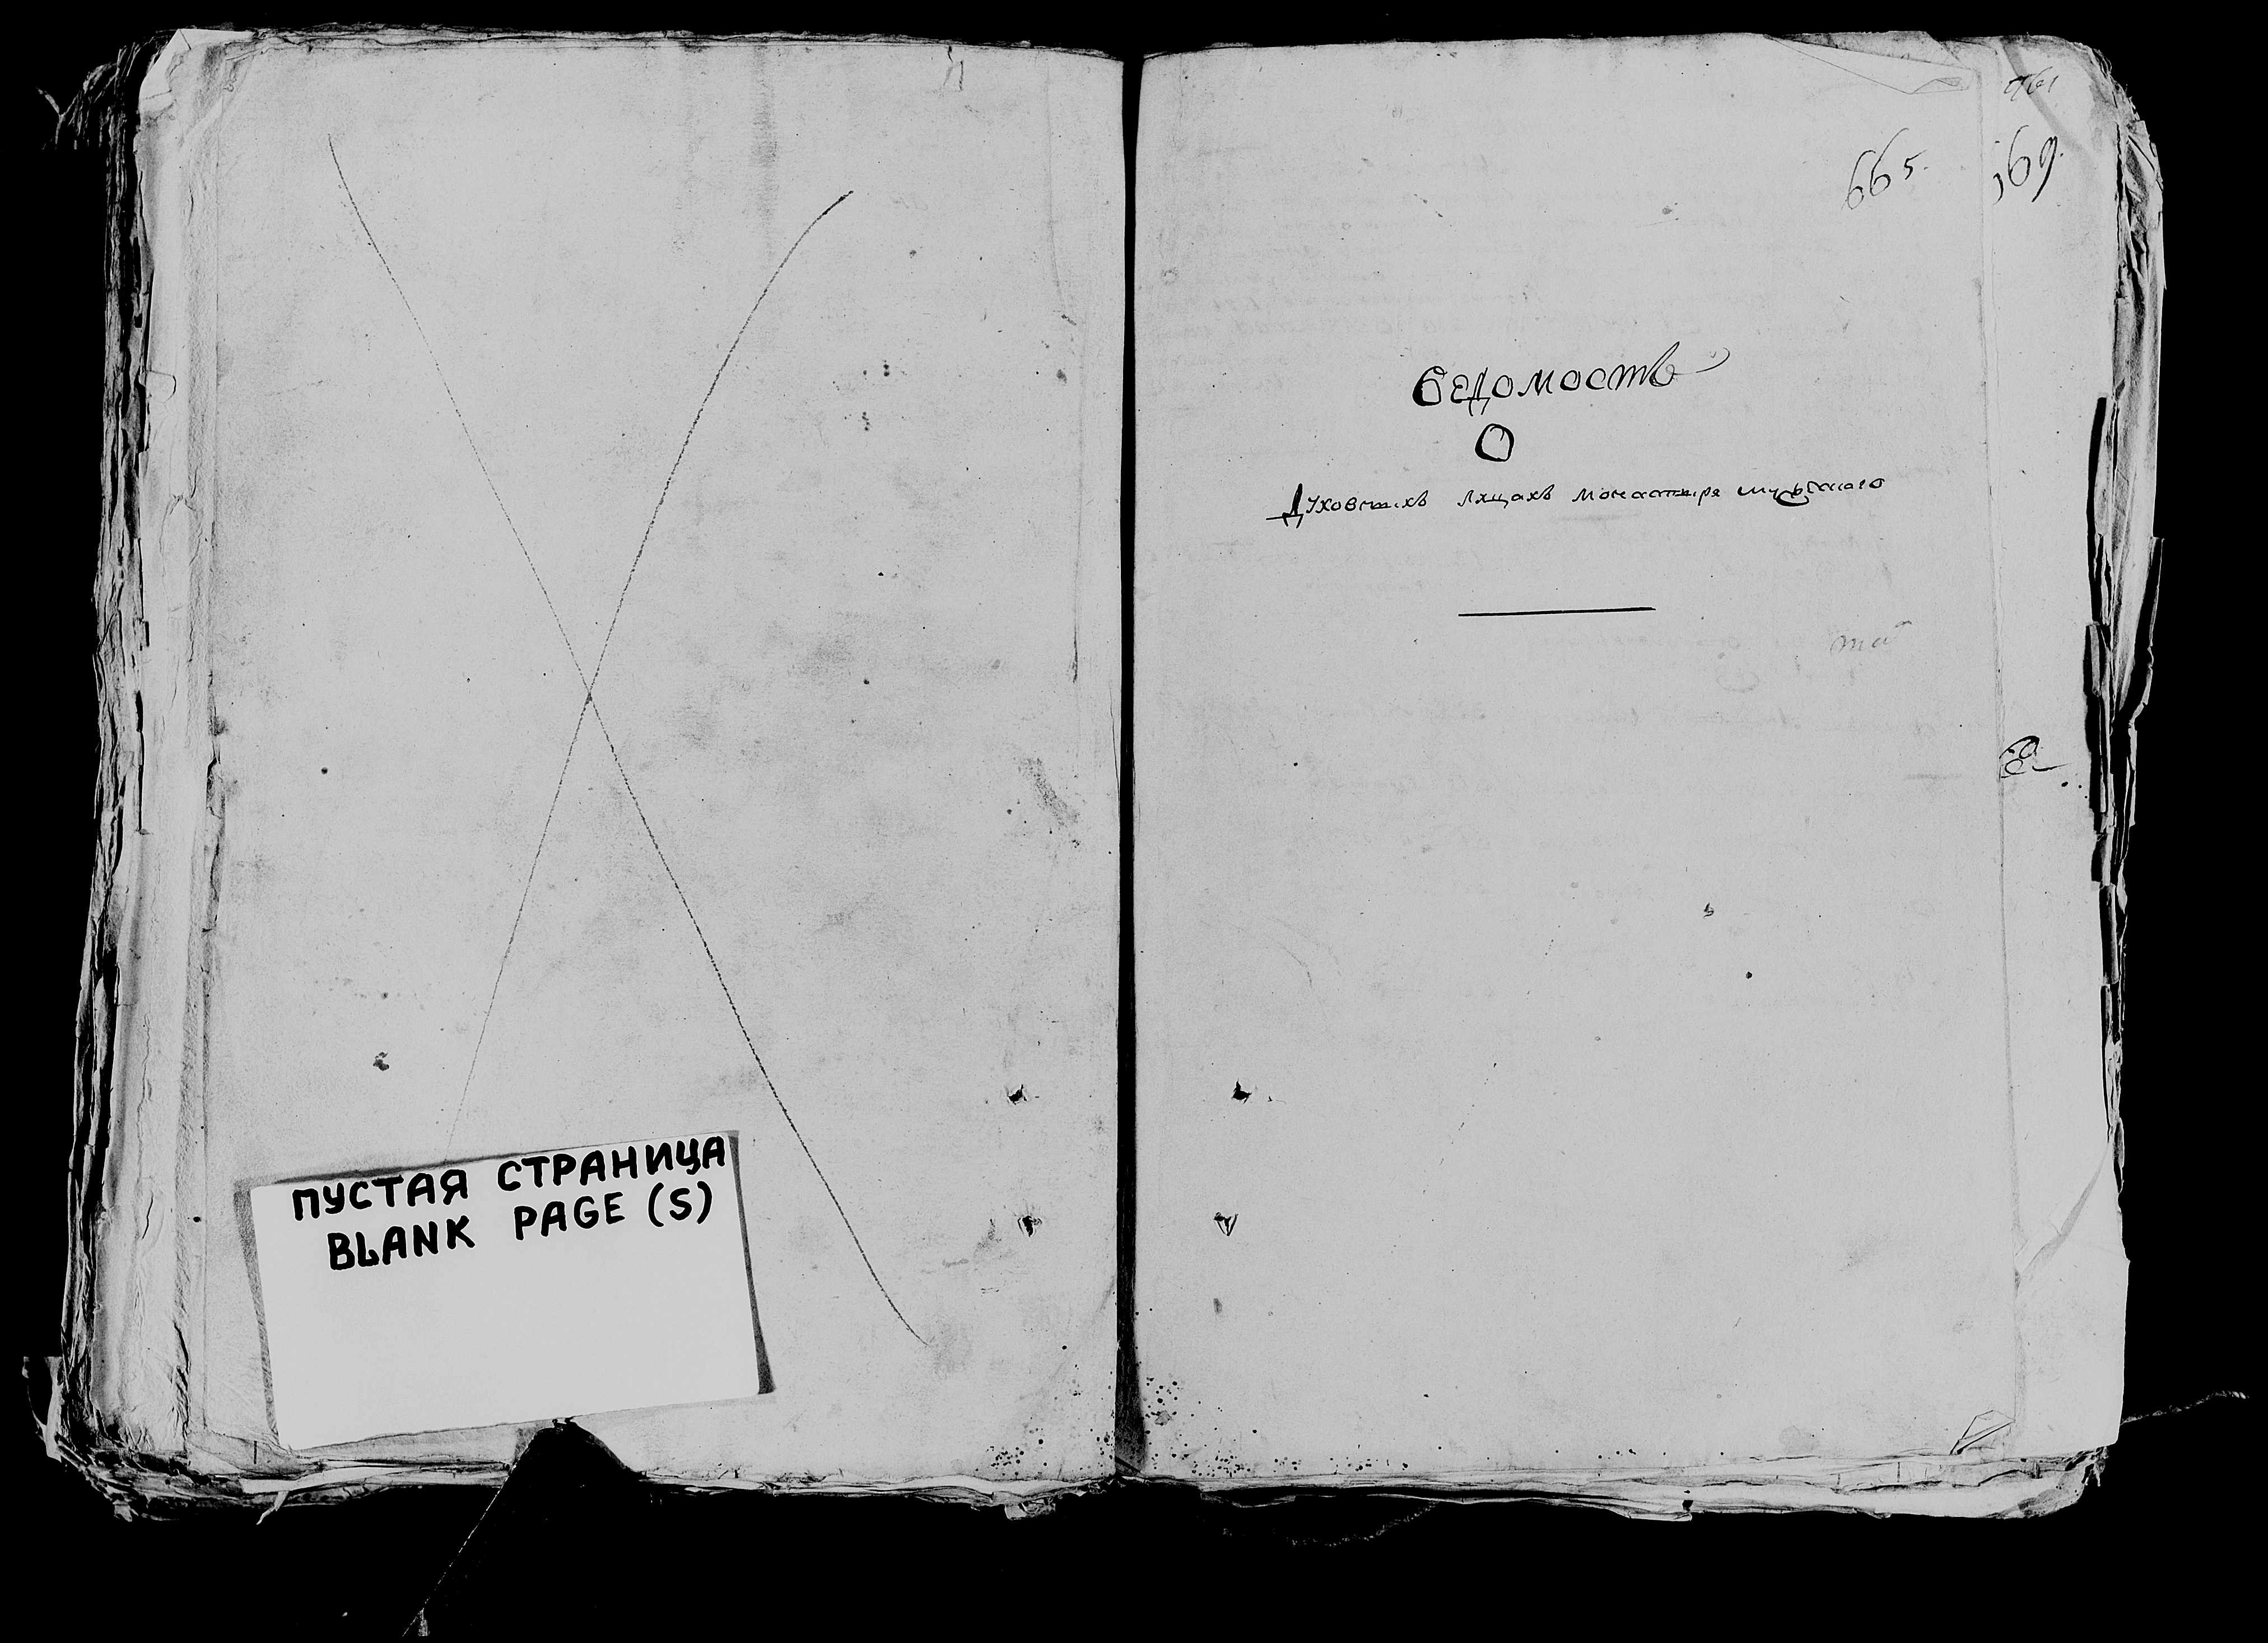 ПУСТАЯ СТРАНИЦА
BLANK PAGE (S)
665.
ведомость
О
Духовныхъ лицахъ монастыря